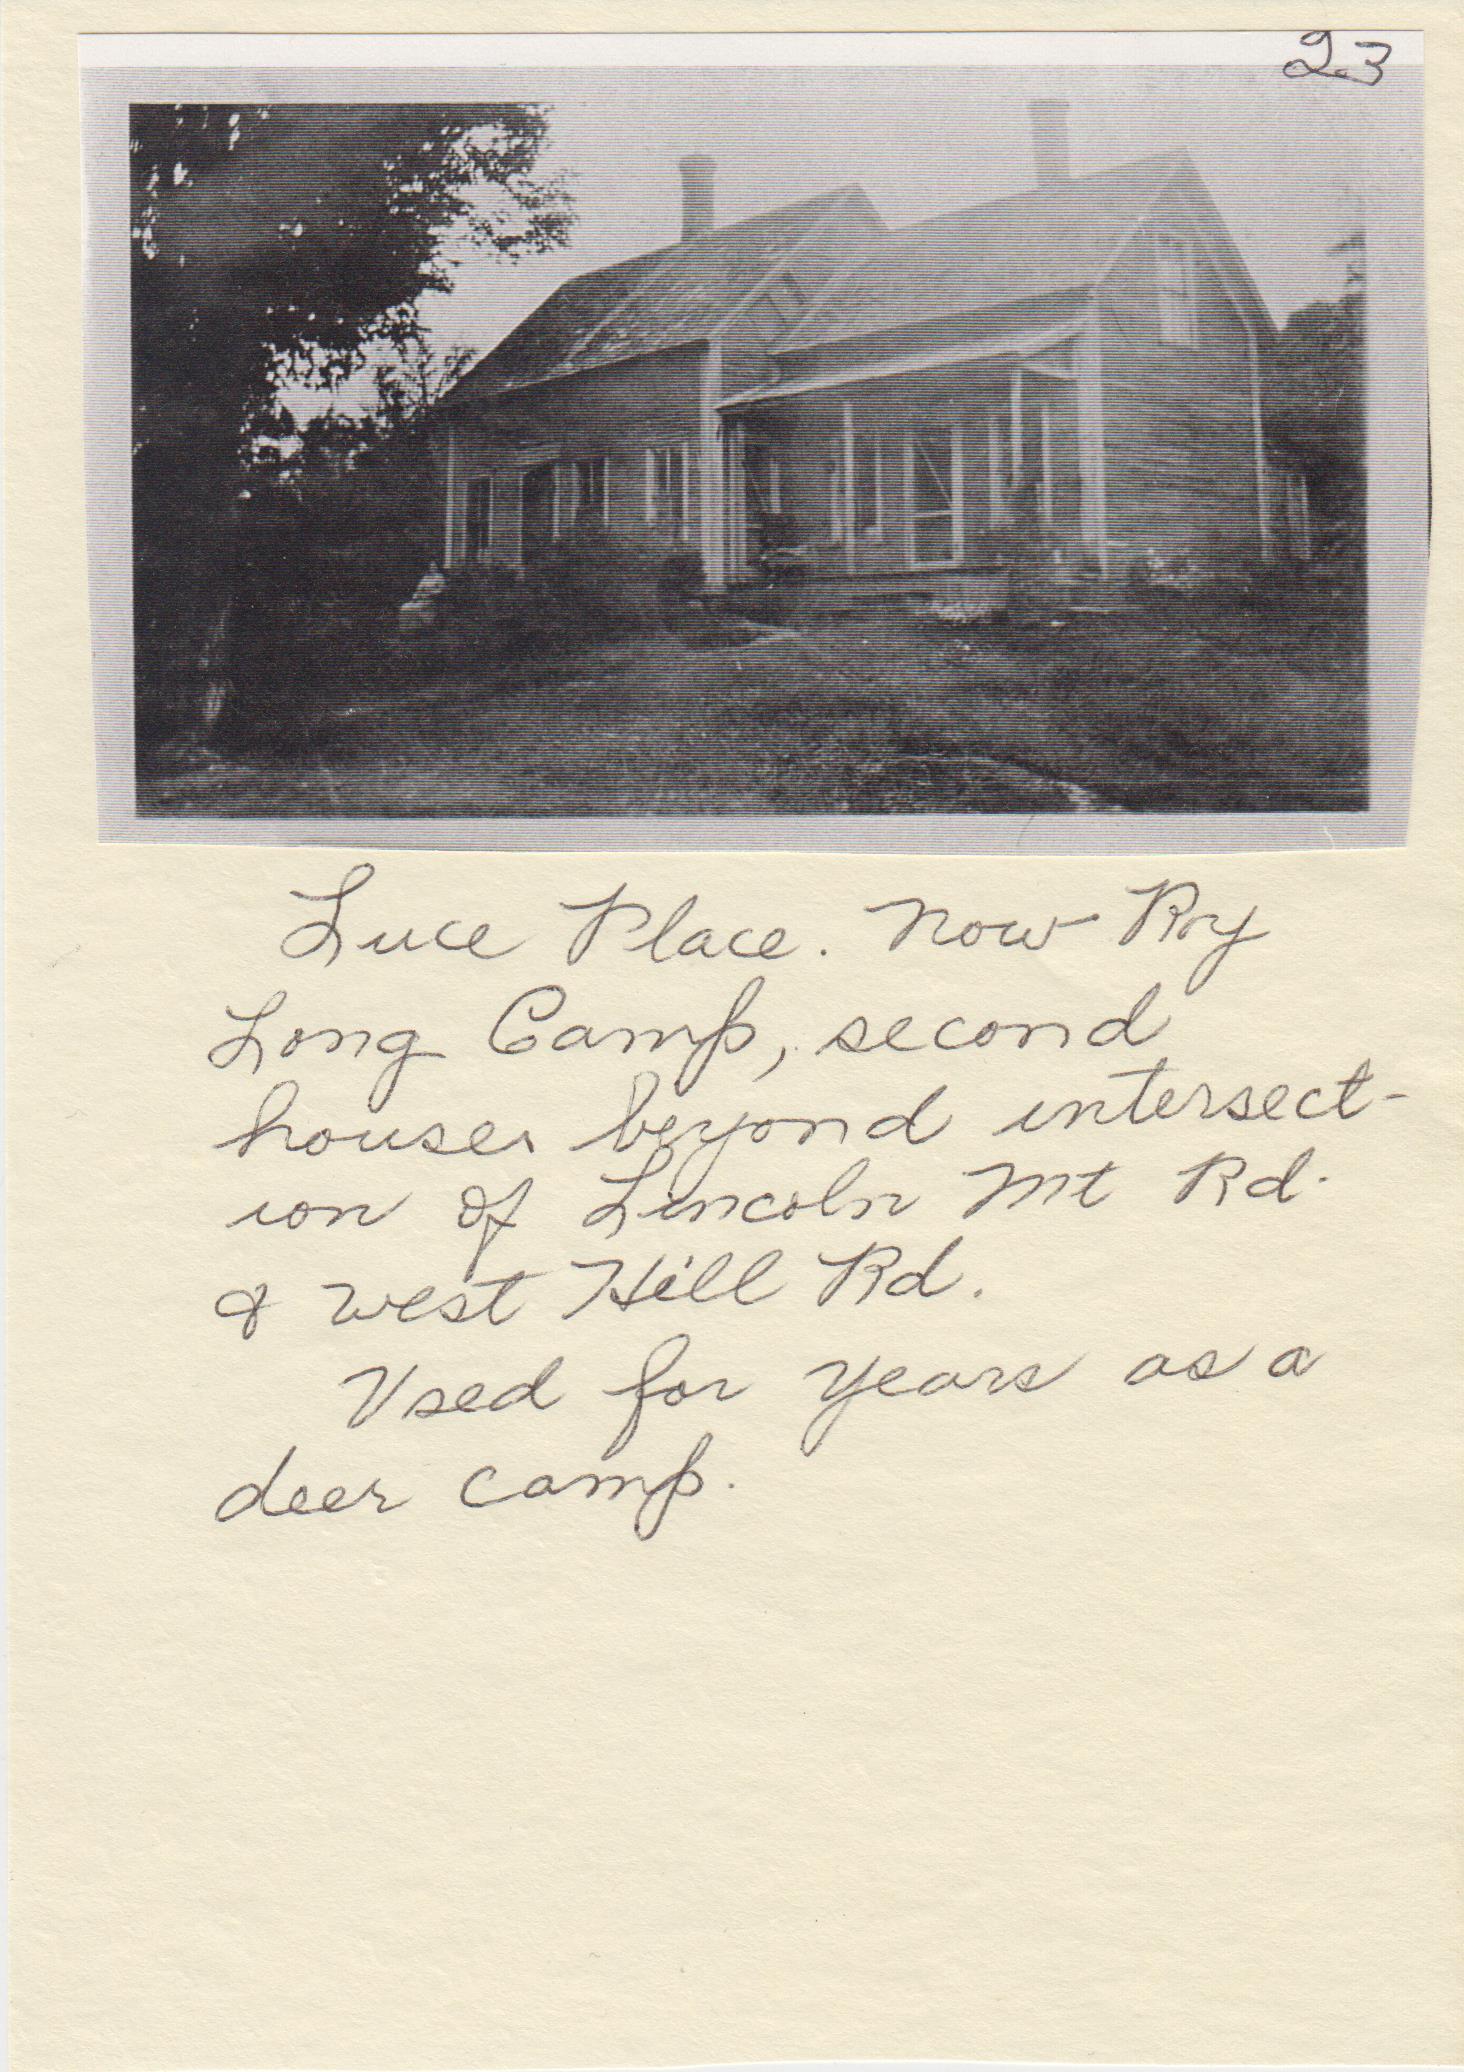 23
Luce Place. Now Roy
Long Camp, second
house beyond intersect-
ion of Lincoln Mt Rd.
& West Hill Rd.
Used for years as a
deer camp.